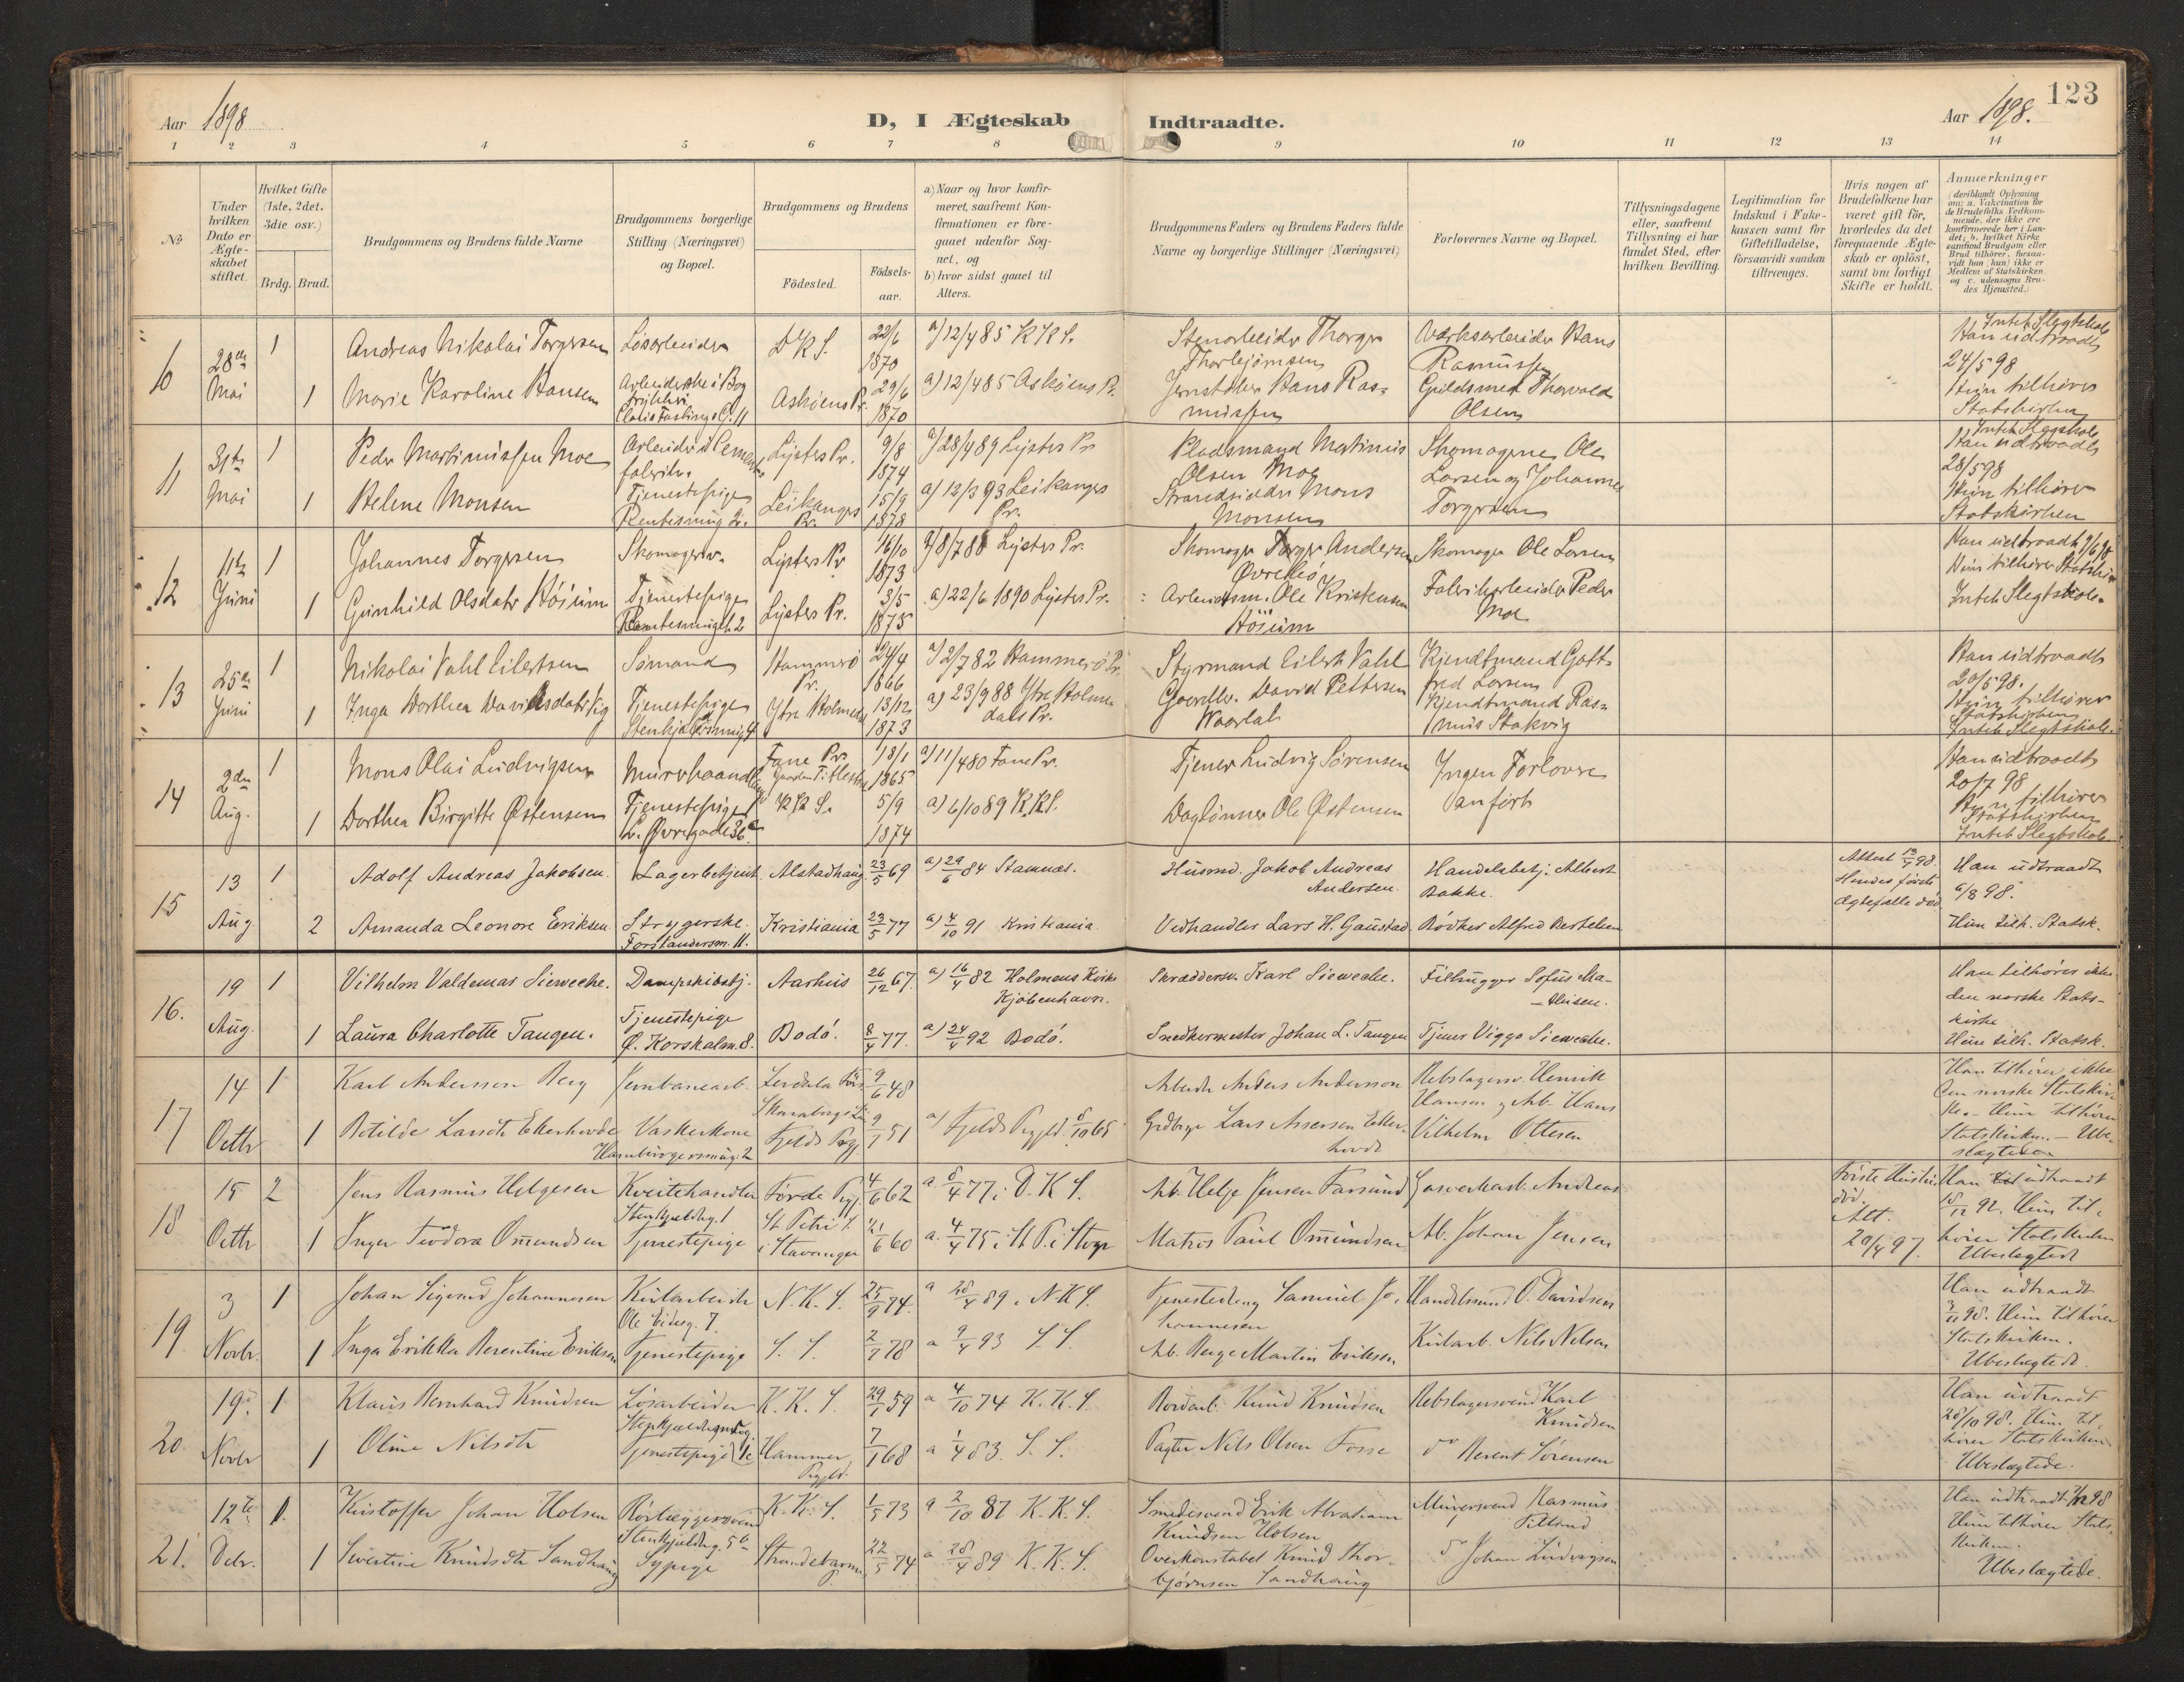 123
Aar 1898
D, I Ægteskab Indtraadte.
Aar 1898.
1 2 3 4 5 6 7 8 9 10 11 12 13 14
No
Under hvilken Dato er Ægteskabet stiftet.
Hvilket Gifte (1ste, 2det, 3die osv.)
Brdg. Brud.
Brudgommens og Brudens fulde Navne
Brudgommens borgerlige Stilling (Næringsvei) og Bopæl.
Brudgommens og Brudens
Födested.
Födselsaar.
a) Naar og hvor konfirmeret, saafremt Konfirmationen er foregaaet udenfor Sognet, og
b) hvor sidst gaaet til Alters.
Brudgommens Faders og Brudens Faders fulde Navne og borgerlige Stillinger (Næringsvei)
Forlovernes Navne og Bopæl.
Tillysningsdagene eller, saafremt Tillysning ei har fundet Sted, efter hvilken Bevilling.
Legitimation for Indskud i Enkekassen samt for Giftetilladelse, forsaavidt saadan tiltrænges.
Hvis nogen af Brudefolkene har været gift för, hvorledes da det foregaaende Ægteskab er oplöst, samt om lovligt Skifte er holdt.
Anmærkninger
(deriblandt Oplysning om: a. Vakcination för de Brudefolks Vedkommende, der ikke ere konfirmerede her i Landet; b. hvilket Kirkesamfund Brudgom eller Brud tilhörer, forsaavidt han (hun) ikke er Medlem af Statskirken og c. udensogns Brudes Hjemsted.)
10 28de Mai 1 Andreas Nikolai Torgersen Løsarbeider D.K.S. 22/6 1870 a) 12/4 85 K.K.S. Stenarbeider Thorger Thorbjørnsen Værksarbeider Hans Rasmussen Intet Slegtskab Han udtraadt 24/5 98
1 Marie Karoline Hansen Arbeiderske i Bogtrykkeri Askøens Pr. 29/6 1870 a) 12/4 85 Askøens Pr. Jernstøber Hans Rasmussen Guldsmed Thorvald Olsen Hun tilhører Statskirken
11 31te Mai 1 Peder Martinussen Moe Arbeider i Cementfabrik Lysters Pr. 9/8 1874 a) 28/4 89 Lysters Pr Pladsmand Martinus Olsen Moe Skomagerne Ole Larsen og Johannes Torgersen Intet Slegtskab Han udtraadt 28/5 98
1 Helene Monsen Tjenestepige Leikanger Pr. 15/9 1878 a) 12/3 93 Leikanger Pr. Strandsidder Mons Monsen Hun tilhører Statskirken
12 11te Juni 1 Johannes Torgersen Skomagersv. Lysters Pr 16/10 1873 a) 8/7 88 Lysters Pr. Skomager Torger Andersen Skomager Ole Larsen Han udtraadt 9/6 98 Hun tilhører Statskir
1 Gunhild Olsdatr Høium Tjenestepige Lysters Pr. 3/5 1875 a) 22/6 1890 Lysters Pr. Arbeidsm. Ole Kristensen Høium Fabrikarbeider Peder Moe Intet Slegtskab.
13 25de Juni 1 Nikolai Vahl Eilertsen Sømand Hammerø Pr. 24/4 1866 a) 2/7 82 Hammerø Pr. Styrmand Eilert Vahl Kjendtmand Gottfred Larsen Han udtraadt 20/5 98.
1 Inga Dorthea Davidsdatr Vig Tjenestepige Ytre Holmed 13/12 1873 a) 23/9 88 Ytre Holmedals Pr. Gaardbr. David Pettersen Kjendtmand Rasmus Stakvig Hun tilhører Statskirken Intet Slegtskab.
14 2den Aug. 1 Mons Olai Ludvigsen Murerhaandl Fane Pr. 18/1 1865 a) 11/4 80 Fane Pr. Tjener Ludvig Sørensen Ingen Forlovere anført Han udtraadt 20/7 98
1 Dorthea Birgitte Østensen Tjenestepige L. Øvregade 36 K.K.S. 5/9 1874 a) 6/10 89 K.K.S. Daglønner Ole Østensen Hun tilhører Statskirken Intet Slegtskab
15 13 Aug. 1 Adolf Andreas Jakobsen. Lagerbetjent. Alstadhaug. 23/5 69 a) 29/6 84 Stamnæs. Husmd. Jakob Andreas Andersen. Handelsbetj. Albert Bakke. Attest 13/7 98. Hendes første Ægtefælle død. Han udtraadt 6/8 98.
2 Amanda Leonore Eriksen Strygerske. Forstandersm. 11. Kristiania 23/5 77 a) 4/10 91 Kristiania. Vedhandler Lars H. Gaustad. Bödker Alfred Bertelsen Hun tilh. Statsk.
16. 19 Aug. 1 Vilhelm Valdemar Siewecke. Dampskibsbetj. Aarhus 26/12 67. a) 16/4 82 Holmens Kirke Kjöbenhavn. Skræddersv. Karl Siewecke. Filhugger Sofus Mathisen. Han tilhører ikke den norske Statskirke
1 Laura Charlotte Tangen. Tjenestepige Ø. Korskalm. 8. Bodö. 8/4 77. a) 24/4 92 Bodö. Snedkermester Johan L. Tangen Tjener Viggo Siewecke. Hun tilh. Statsk.
17 14 Octbr 1 Karl Andersson Berg Jernbanearb. 9/6 48 Arbeider Anders Andersson Rebslagersv. Henrik Hansen og Arb. Hans Vilhelm Ottesen Han tilhører ikke den norske Statskirke. – Hun tilhører Statskirken. – Ubeslægtede
1 Botilde Larsdtr Ekerhovde Vaskerkone Fjelds Pgj. 9/1 51 a) Fjelds Prgjld. 8/10 65 Grdbrgr Lars Assersen Ekerhovde
18 15 Octbr 2 Jens Rasmus Helgesen Kveitehandler Førde Pgj. 4/6 62 a. 8/4 77 i D.K.S. Arb. Helge Jensen Farsund Gasverkarb. Andreas Første Hustru død. Att. 20/4 97. Han udtraadt 18/12 92. Hun tilhører Statskirken Ubeslægtede
1 Inger Teodora Omundsen Tjenestepige St Petri S. i Stavanger 21/6 60 a. 4/4 75 i St P. i Stvgr Matros Paul Omundsen Ab. Johan Jensen
19 3 Novbr. 1 Johan Sigvard Johannesen Kularbeider Ole Eidesg. 7 N.K.S. 25/9 74. a 28/4 89. N.K.S. Tjenestedreng Samuel Johannesen Handelsmand O. Davidsen Han udtraadt 3/11 98. Hun tilhører Statskirken. Ubeslægtede.
1 Inga Erikka Berentine Eriksen Tjenestepige S.S. 2/1 78 a 9/4 93 S.S. Ab. Berge Martin Eriksen. Kularb. Nils Nilsen
20 19. Novbr 1 Klaus Bernhard Knudsen Løsarbeider K.K.S. 29/1 59 a 4/10 74 K.K.S. Bordarb. Knud Knudsen Rebslagersvend Karl Knudsen Han udtraadt 28/10 98. Hun tilhører Statskirken. Ubeslægtede.
1 Oline Nilsdtr Tjenestepige Hammer Prgjld. 7/1 68 a 1/4 83. S.S. Pagter Nils Olsen Fosse do Berent Sørensen
21. 12te Decbr. 1. Kristoffer Johan Holsen Rørlæggersvend K.K.S. 1/5 73 a 2/10 87 K.K.S. Smedesvend Erik Abraham Knudsen Holsen Murersvend Rasmus Han udtraadt 98 Hun tilhører Statskirken. Ubeslægtede.
1 Sivertine Knudsdtr Sandhaug Sypige Strandebarm. 22/5 74 a 28/4 89 K.K.S. Overkonstabel Knud Thorbjørnsen Sandhaug do Johan Ludvigsen